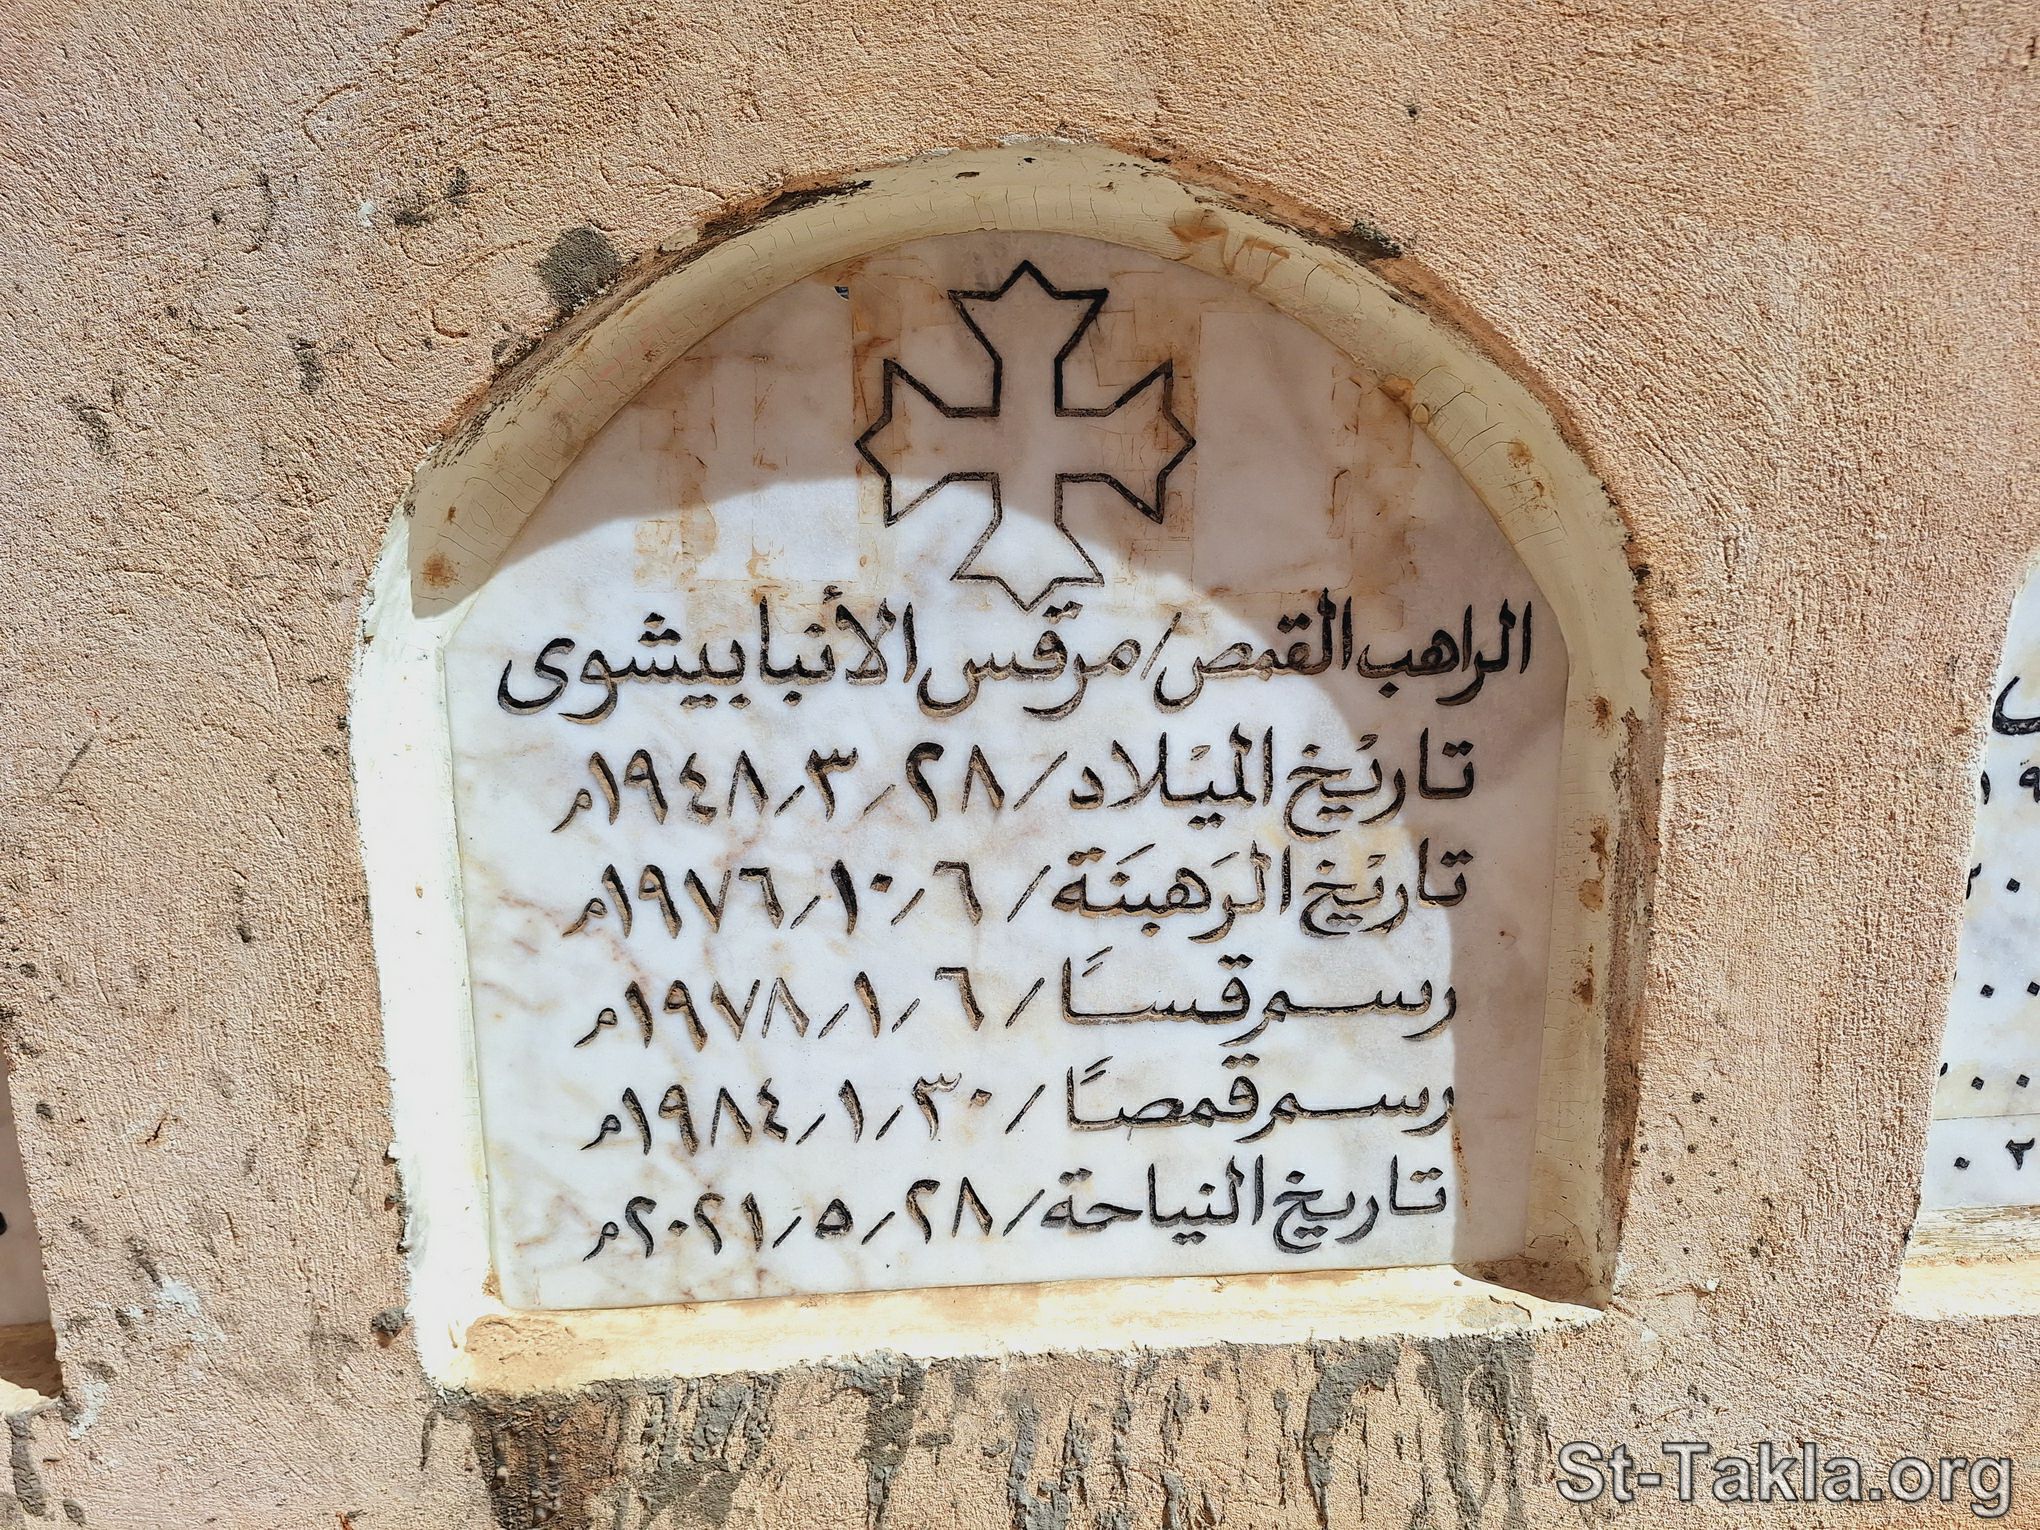 الراهب القمص / مرقس الأنبا بيشوى
تاريْخ الميْلاد / ٢٨ / ٣ / ١٩٤٨م
تاريْخ الرَهبنَة / ٦ / ١٠ / ١٩٧٦م
رسم قسـاً / ٦ / ١ / ١٩٧٨م
رسم قمصاً / ٣٠ / ١ / ١٩٨٤م
تاريخ النياحة / ٢٨ / ٥ / ٢٠٢١م
St-Takla.org